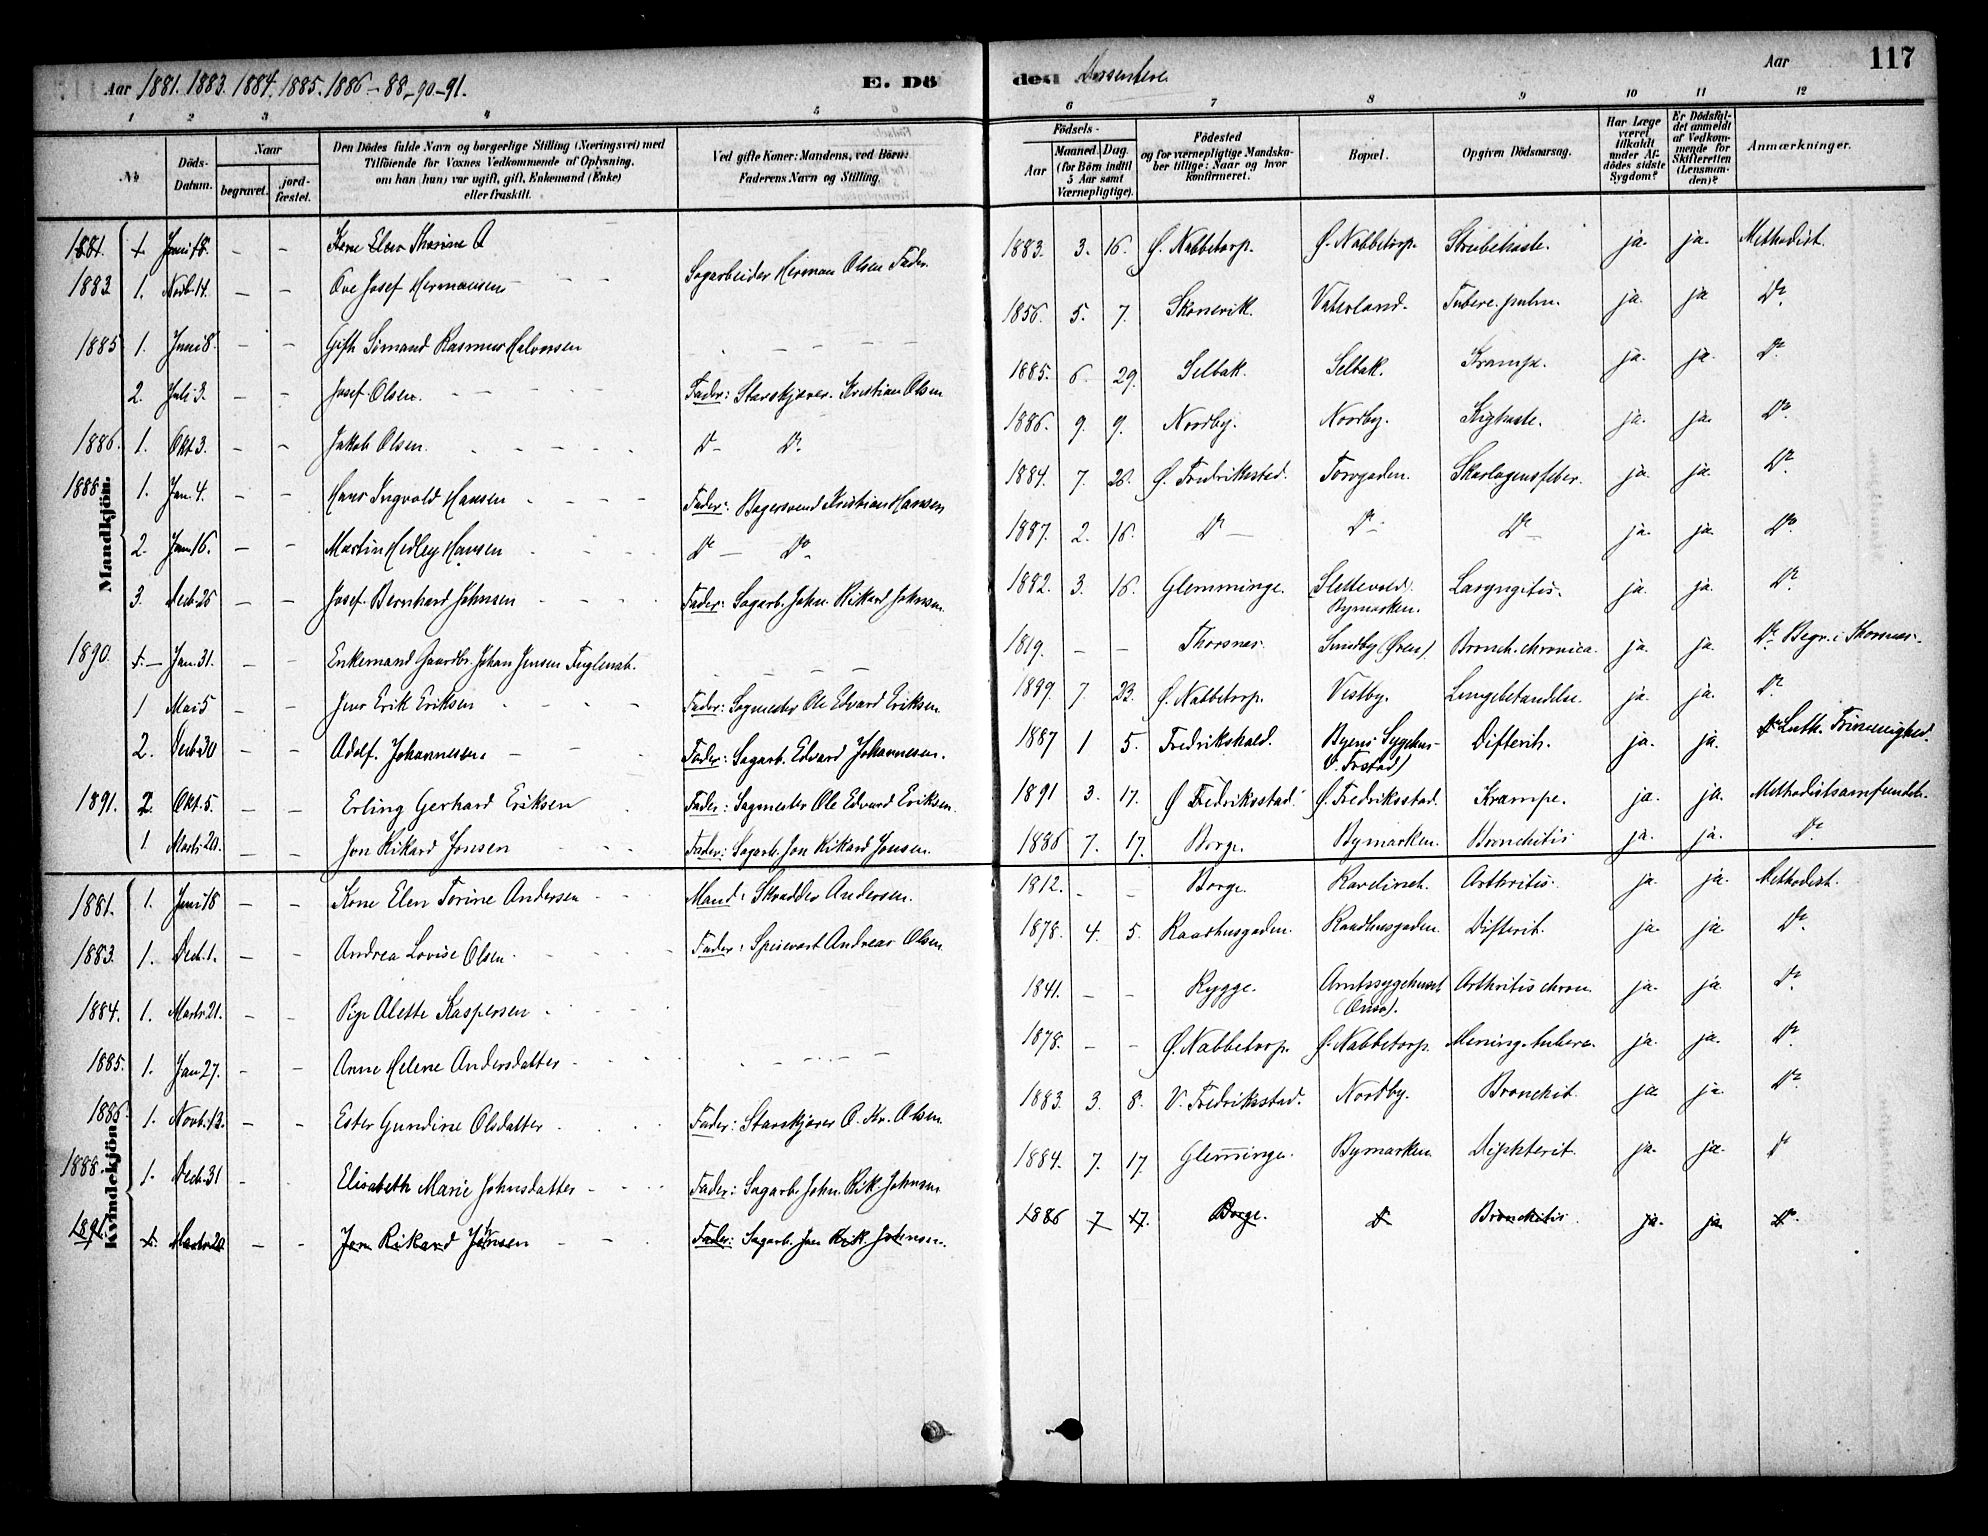 Aar 1881. 1883. 1884. 1885. 1886 - 88 - 90 - 91.
E. Dö
den Dissentere
Aar
117
1 2 3 4 5 6 7 8 9 10 11 12
No
Döds-Datum.
Naar
begravet.
jord-fæstet.
Den Dödes fulde Navn og borgerlige Stilling (Næringsvei) med
Tilföiende for Voxnes Vedkommende af Oplysning,
om han (hun) var ugift, gift, Enkemand (Enke)
eller fraskilt.
Ved gifte Koner: Mandens, ved Börn:
Faderens Navn og Stilling.
Födsels-
Aar
Maaned. Dag.
(for Börn indtil
5 Aar samt
Værnepligtige).
Födested
og for værnepligtige Mandska-
ber tillige: Naar og hvor
konfirmeret.
Bopæl.
Opgiven Dödsaarsag.
Har Læge
været
tilkaldt
under Af-
dödes sidste
Sygdom?
Er Dödsfal-
det anmeldt
af Vedkom-
mende for
Skifteretten
(Lensman-
den)?
Anmærkninger.
Mandkjön.
1881. 1. Juni 18. - - Kone Elen Thorine A
1883 1. Novb. 14. - - Ove Josef Hermansen - - Sagarbeider Herman Olsen Fader. 1883. 3. 16. Ø. Nabbetorp. Ø. Nabbetorp. Strubehoste. ja. ja. Methodist.
1885 1. Juni 8. - - Gift Sömand Rasmus Halvorsen - - - - 1856. 5. 7. Vaterland. Tuberc. pulm. ja. ja Do.
2. Juli 3. - - Josef Olsen. - - - Fader: Stavskjører Kristian Olsen 1885. 6. 29. Selbak. Selbak. Krampe. ja. ja. Do.
1886. 1. Okt 3. - - Jakob Olsen. - - - - Do - Do. 1886. 9. 9. Nordby. Nordby. Kighoste. ja. ja. Do.
1888. 1. Jan. 4. - - Hans Ingvald Hansen - - - Fader: Bagersvend Kristian Hansen 1884. 7. 26. Ø. Fredrikstad. Torvgaden. Skarlagensfeber. ja. ja. Do.
2. Jan. 16. - - Martin Hedley Hansen - - - Do - Do. 1887. 2. 16. Do - Do - Do - ja. ja. Do.
3. Decb. 25 - - Josef Bernhard Johnsen - - - Fader: Sagarb. John Rikard Johnsen. 1882. 3. 16. Glemminge. Slettevold) Bymarken. Laryngitis. ja. ja. Do.
1890. 1. - Jan. 31. - - Enkemand Gaardbr. Johan Jensen - - 1819. - - Thorsnes. Sundby (Øren). Bronch. chronica. ja. ja. Do. Begr. i Thorsnes.
1 Mai 5 - - Jens Erik Eriksen - - - - Fader: Sagmester Ole Edvard Eriksen. 1889. 7. 23. Ø. Nabbetorp. Vestby. Lungebetændelse. ja. ja. Do.
2. Decb. 30 - - Adolf Johannesen. - - - Fader: Sagarb. Edvard Johannesen. 1887 1 5. Fredrikshald. Byens Sygehus (V. Frstad) Difterit. ja. ja. Luth. Frimenighed.
1891. 2 Okt. 5. - - Erling Gerhard Eriksen - Fader: Sagmester Ole Edvard Eriksen. 1891 3. 17. Ø Fredriksstad. Ø. Fredriksstad. Krampe. ja. ja. Methodistsamfundet.
1 Marts 20. - - Jon Rikard Jonsen - - - Fader: Sagarb. Jon Rikard Jonsen. 1886 7. 17. Borge. Bymarken. Bronchitis ja. ja. Do
Kvindekjön.
1881. 1. Juni 18 - - Kone Elen Torine Andersen - - Mand: Skrædder Andersen. 1812. - - Borge. Ravelinet. Arthritis. ja. ja. Methodist.
1883. 1. Decb. 1. - - Andrea Lovise Olsen. - - - - Fader: Spisevært Andreas Olsen 1878. 4. 5. Raadhusgaden. Raadhusgaden. Difterit. ja. ja. Do.
1884. 1. Marts 21. - - Pige Alette Kaspersen - - - 1841. - - Rygge. Amtssygehuset (Onsø). Arthritis chron. ja. ja. Do.
1885. 1. Jan 27. - - Anne Helene Andersdatter - - - 1878. - - Ø. Nabbetorp. Ø. Nabbetorp. Mening. tuberc. ja. ja. Do.
1886. 1. Novb. 13. - - Ester Gundine Olsdatter - - - Fader: Stavskjører O. Kr. Olsen. 1883. 3. 8. V. Fredriksstad. Nordby. Bronchit. ja. ja. Do
1888. 1. Decb. 31 - - Elisabeth Marie Johnsdatter - - - Fader: Sagarb. John Rik. Johnsen 1884. 7. 17 Glemminge. Bymarken. Diphterit. ja. ja. Do
1891. 1. Marts 20 - - Jon Rikard Johnsen - - Fader: Sagarb. Jon Rik. Johnsen. 1886 7 17. Borge. Do Bronchitis. ja. ja. Do.